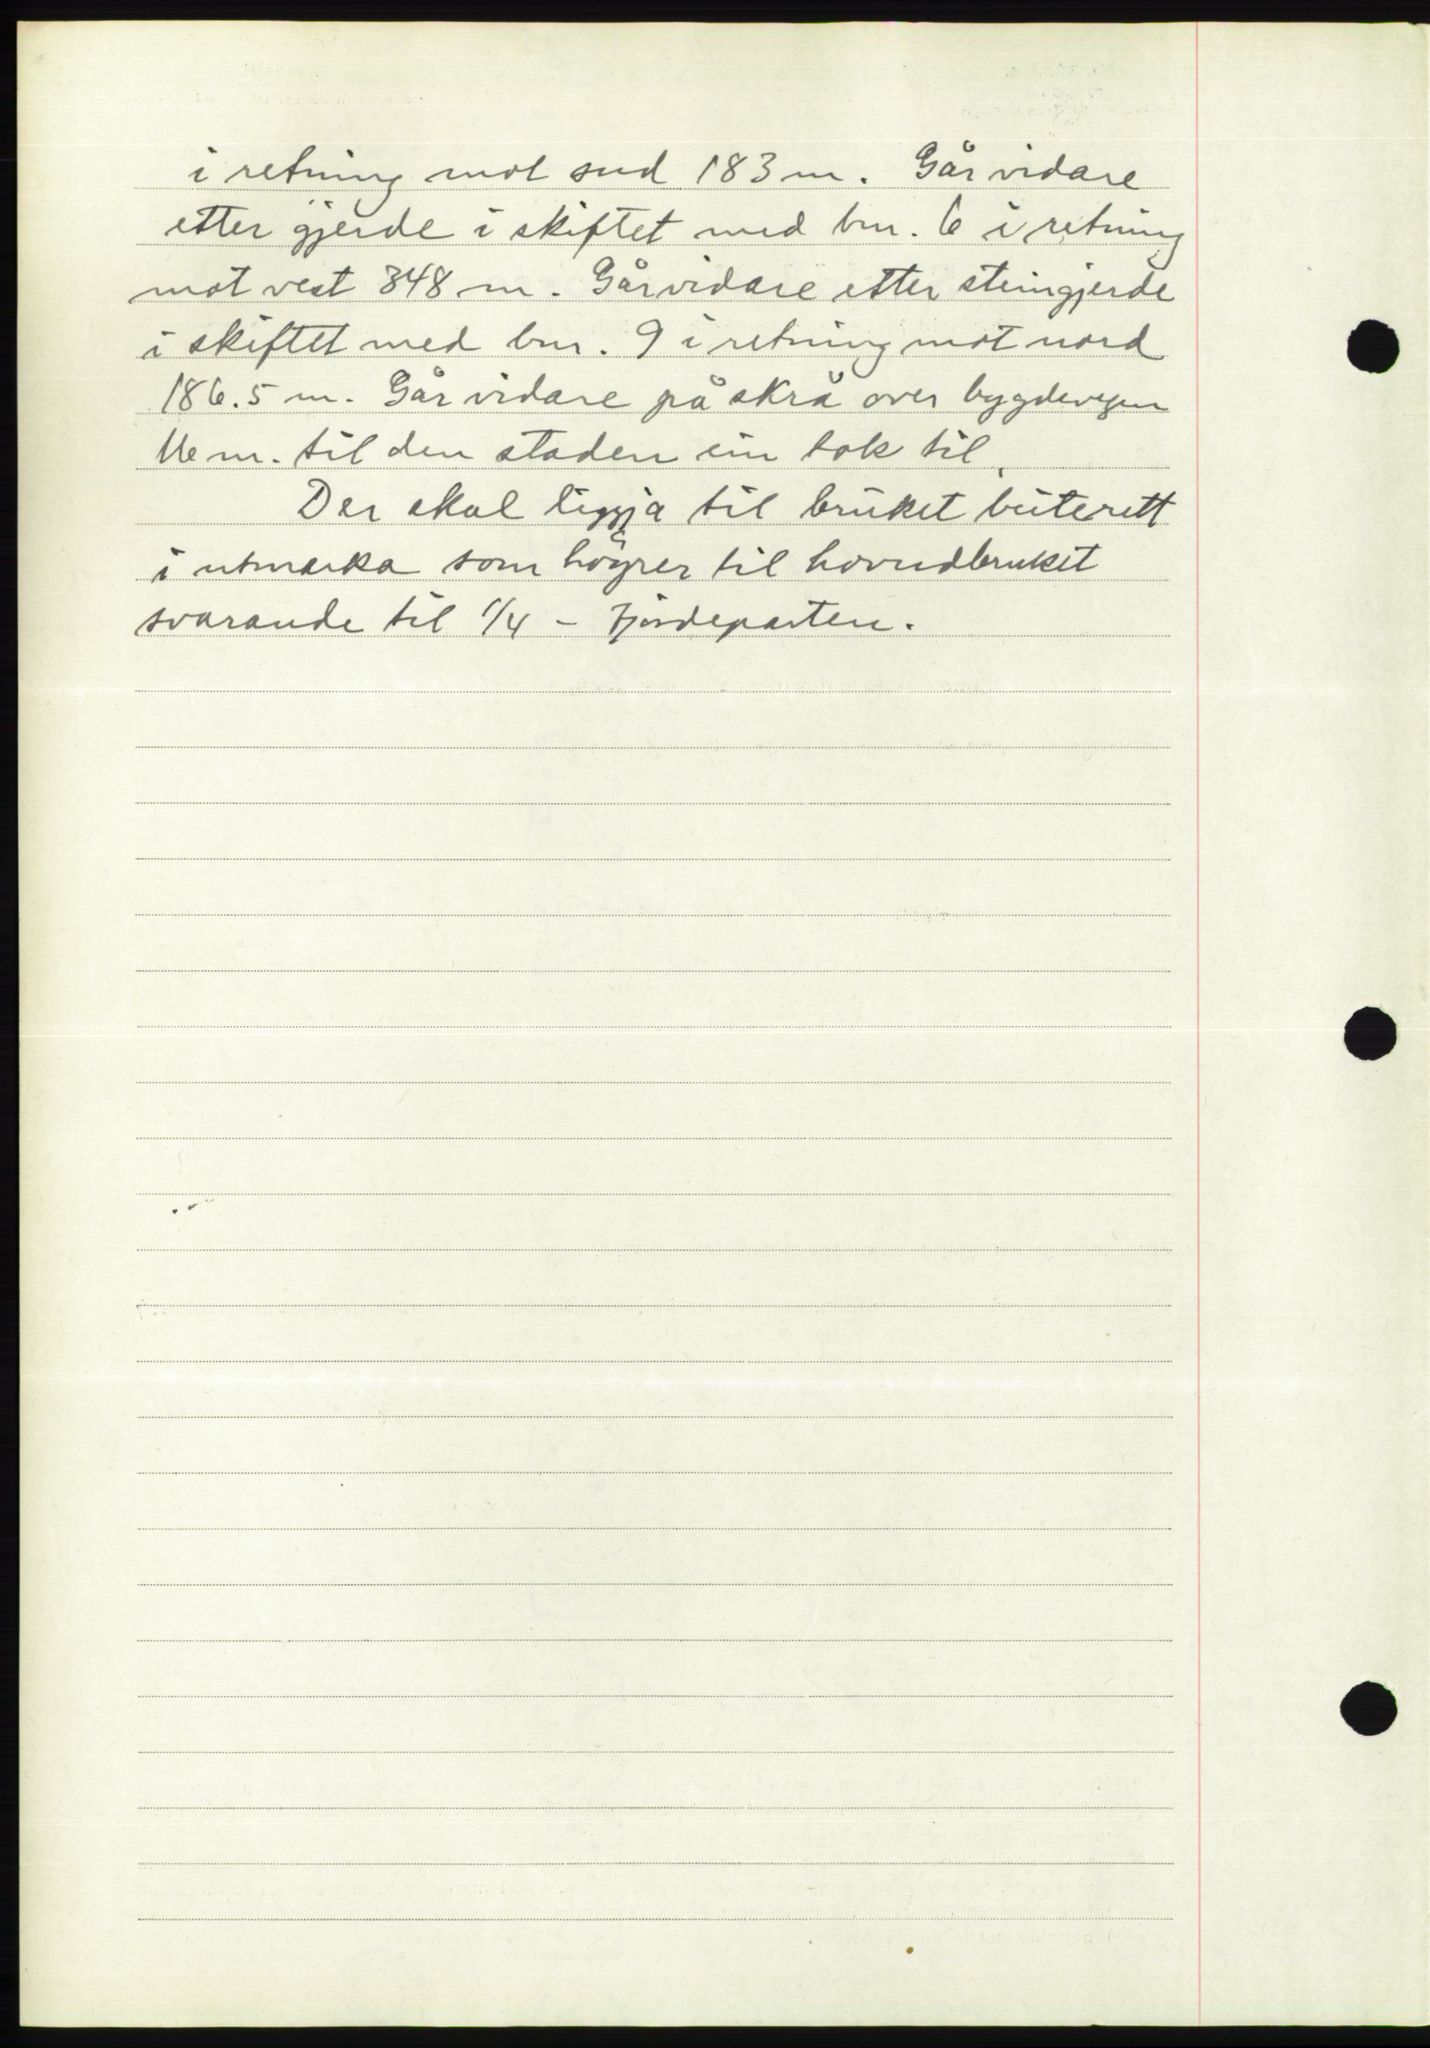 i retning mot sud 183 m. Går vidare
etter gjerde i skiftet med bnr. 6 i retning
mot vest 348 m. Går vidare etter steingjerde
i skiftet med bnr. 9 i retning mot nord
186.5 m. Går vidare på skrå over bygdevegen
16 m. til den staden ein tok til.
Der skal liggja til bruket beiterett
i utmarka som høyrer til hovudbruket
svarande til 1/4 - fjordeparten.